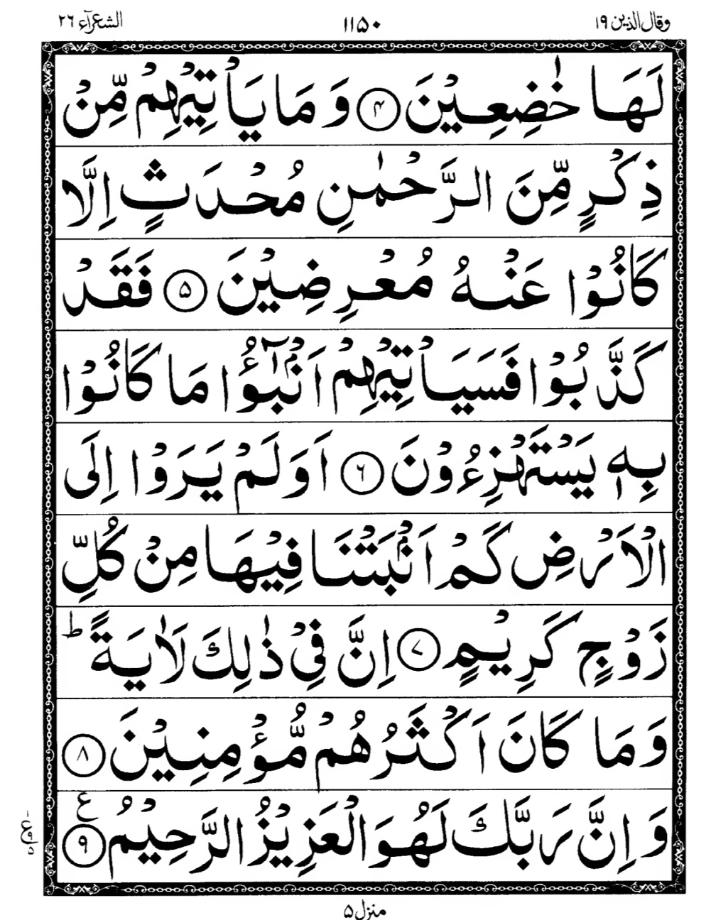 وقال الذین ۱۹ ۱۱۵۰ الشعرآء ۲۶
لَهَا خٰضِعِيْنَ ۴ وَ مَا يَاْتِيْهِمْ مِّنْ
ذِكْرٍ مِّنَ الرَّحْمٰنِ مُحْدَثٍ اِلَّا
كَانُوْا عَنْهُ مُعْرِضِيْنَ ۵ فَقَدْ
كَذَّبُوْا فَسَيَاْتِيْهِمْ اَنْۢبٰٓؤُا مَا كَانُوْا
بِهٖ يَسْتَهْزِءُوْنَ ۶ اَوَلَمْ يَرَوْا اِلَى
الْاَرْضِ كَمْ اَنْۢبَتْنَا فِيْهَا مِنْ كُلِّ
زَوْجٍ كَرِيْمٍ ۷ اِنَّ فِيْ ذٰلِكَ لَاٰيَةً ؕ
وَ مَا كَانَ اَكْثَرُهُمْ مُّؤْمِنِيْنَ ۸
وَ اِنَّ رَبَّكَ لَهُوَ الْعَزِيْزُ الرَّحِيْمُ ۹ ع
منزل ۵